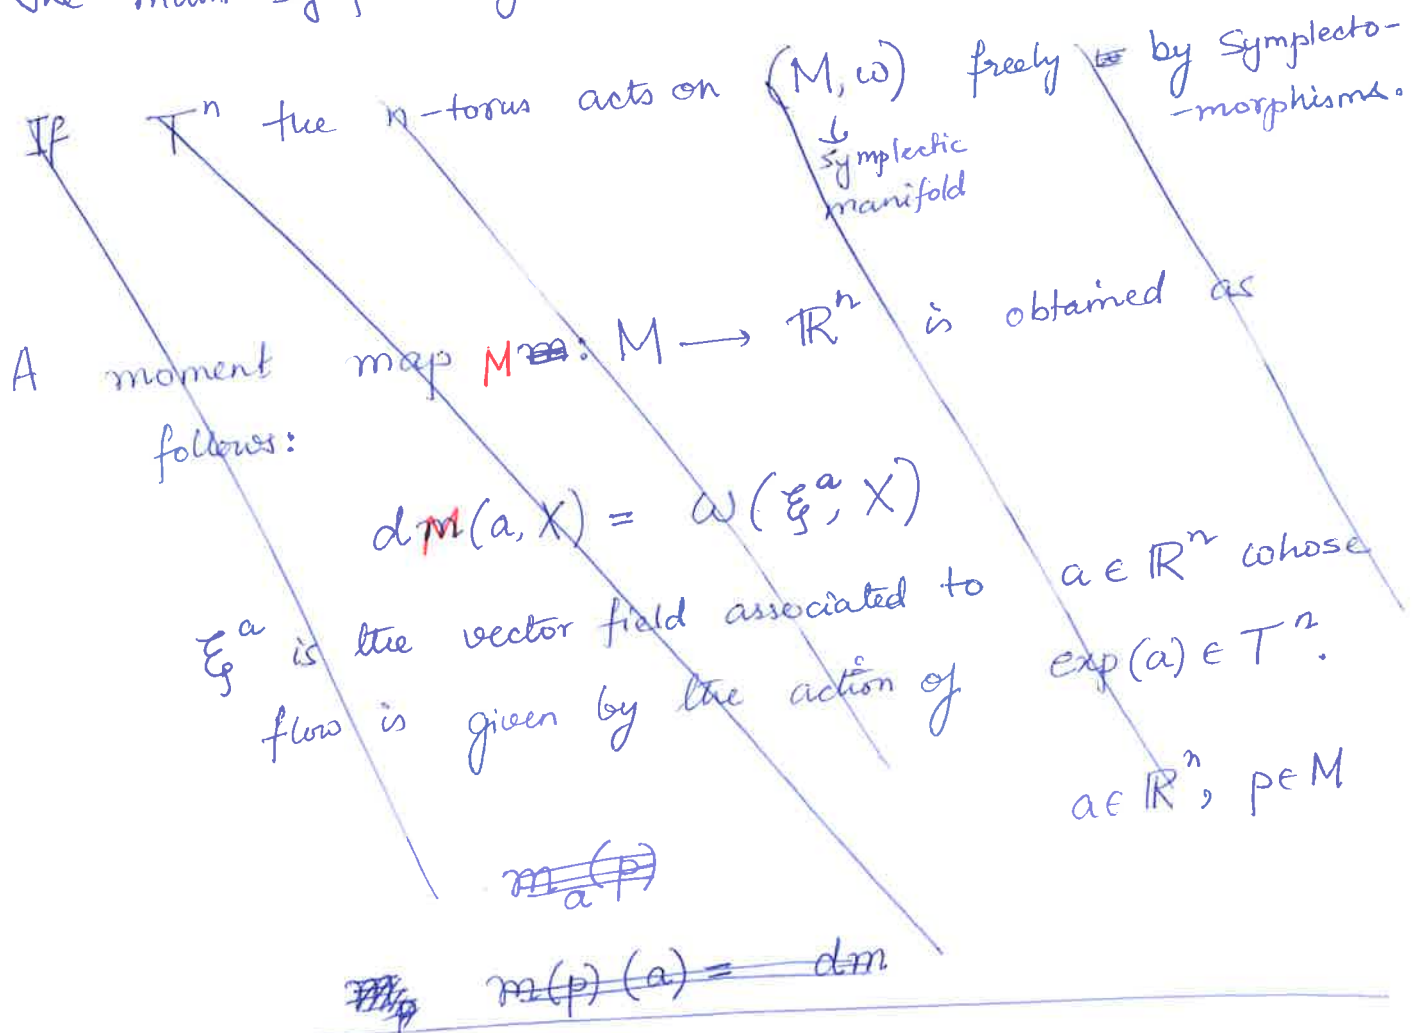 If Tⁿ the n-torus acts on (M, ω) freely by Symplecto-
-morphisms.
↓
symplectic
manifold
A moment map M : M ⟶ ℝⁿ is obtained as
follows:
dM(a, X) = ω(ξᵃ, X)
ξᵃ is the vector field associated to a ∈ ℝⁿ whose
flow is given by the action of exp(a) ∈ Tⁿ.
a ∈ ℝⁿ, p ∈ M
m_a(p)
m(p)(a) = dm